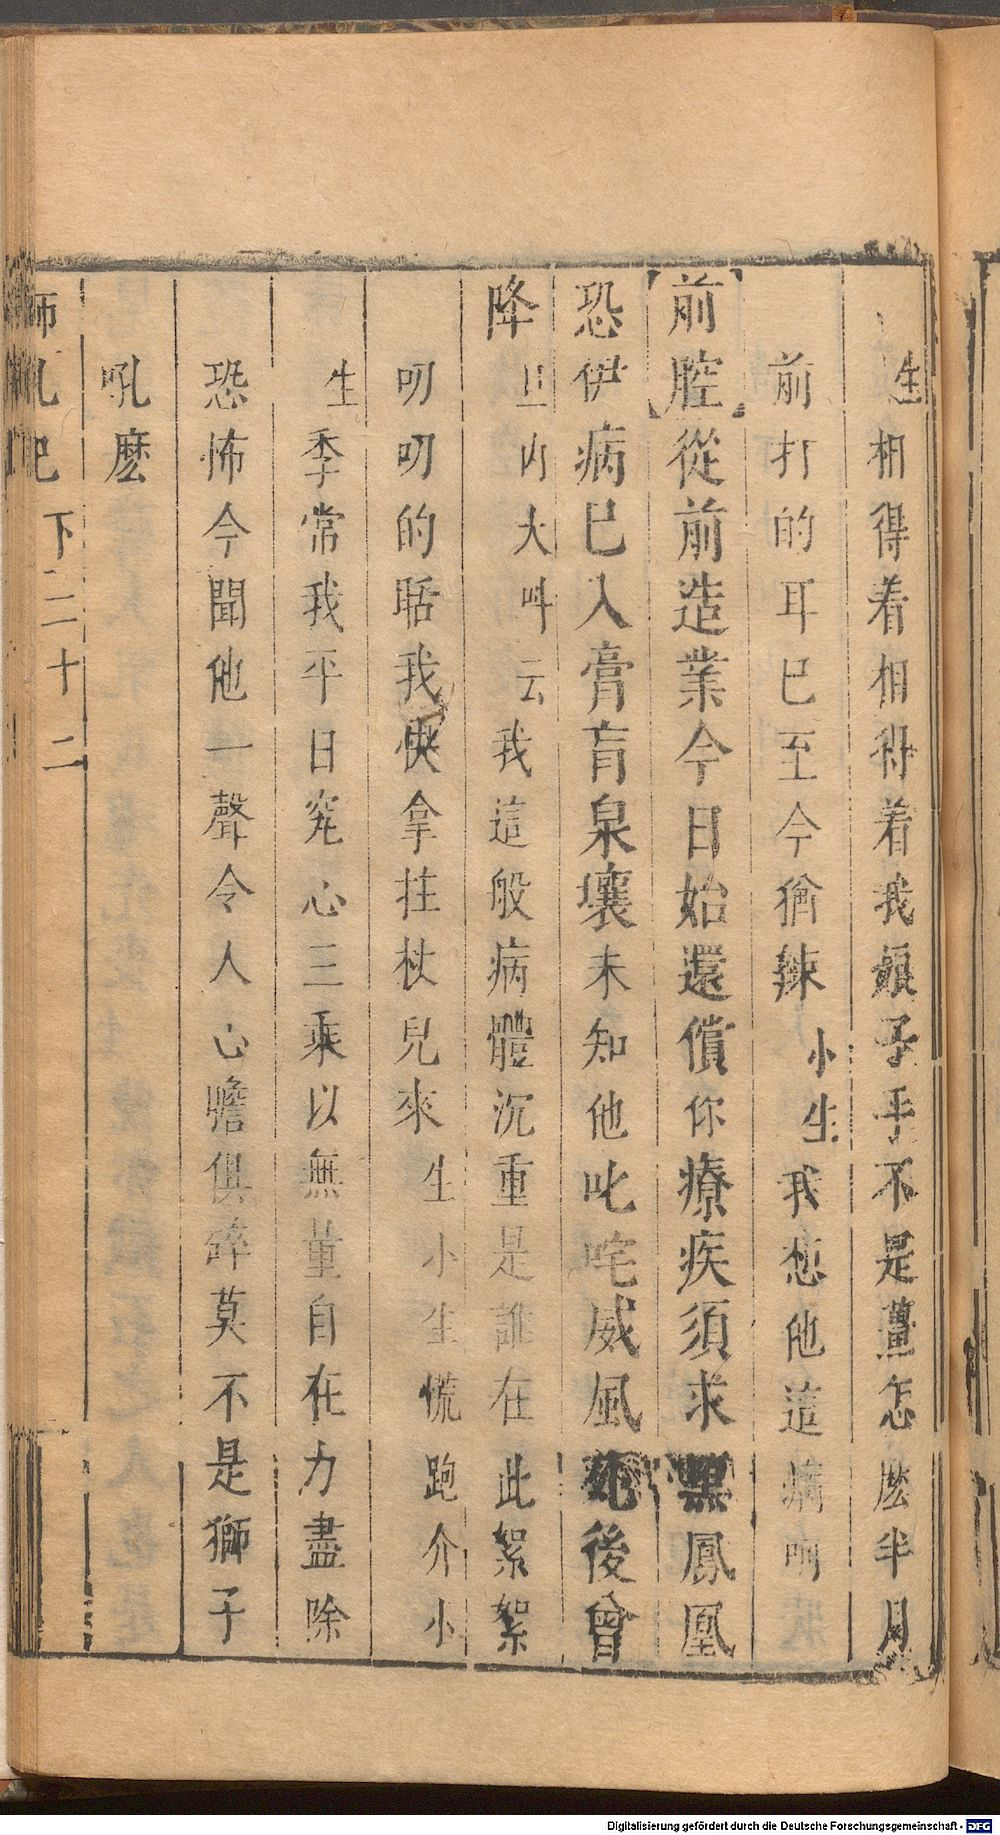 生相得着相得着我娘子手不是薑怎麽半月
前打的耳巴至今猶辣小生我想他這病
前腔從前造業今日始還償你療疾須求黑鳳凰
恐伊病已入膏肓泉壤未知他叱咤威風死後曾
降旦內大叫云我這般病體沉重是誰在此絮絮
叨叨的聒我快拿拄杖兒來生小生慌跑介小
生季常我平日究心三乘以無量自在力盡除
恐怖今聞他一聲令人心膽俱碎莫不是獅子
吼麽
師吼記 下 三十二
Digitalisierung gefördert durch die Deutsche Forschungsgemeinschaft - DFG